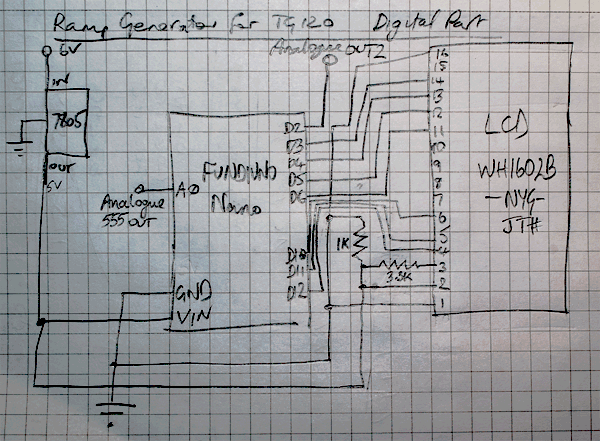 Ramp Generator for TG120 Digital Part
6V
IN
7805
OUT
5V
Analogue OUT2
FUNDUINO
Nano
A0
Analogue
555 OUT
GND
VIN
D2
D3
D4
D5
D6
D10
D11
D12
1K
3.3K
16
15
14
13
12
11
10
9
8
7
6
5
4
3
2
1
LCD
WH1602B
-NYG-
JT#